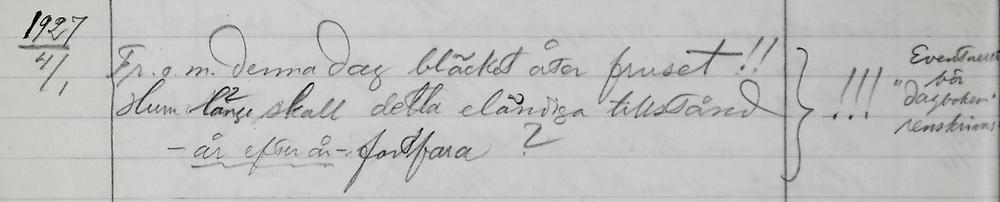 1927
4/1
Fr. o. m. denna dag bläcket åter fruset!!
Hur länge skall detta eländiga tillstånd
- år efter år - fortfara ?
!!!
Eventuellt
bör
"dagboken"
renskrivas